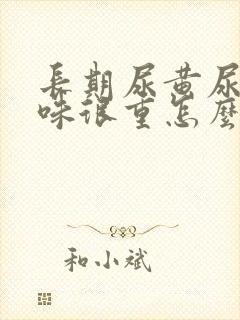 長期尿黃尿
味很重怎麼
和小斌